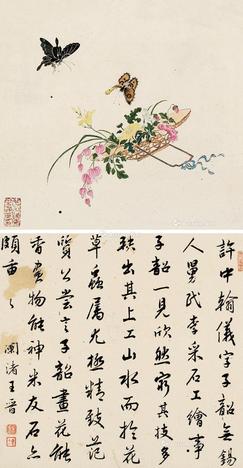 許中翰儀字子韶無錫
人舅氏李采石工繪事
子韶一見欣然窮其技多
軼出其上工山水而於花
草蟲屬尤極精致范
質公嘗言子韶畫花能
香畫物能神米友石亦
頗重之
渚王晉